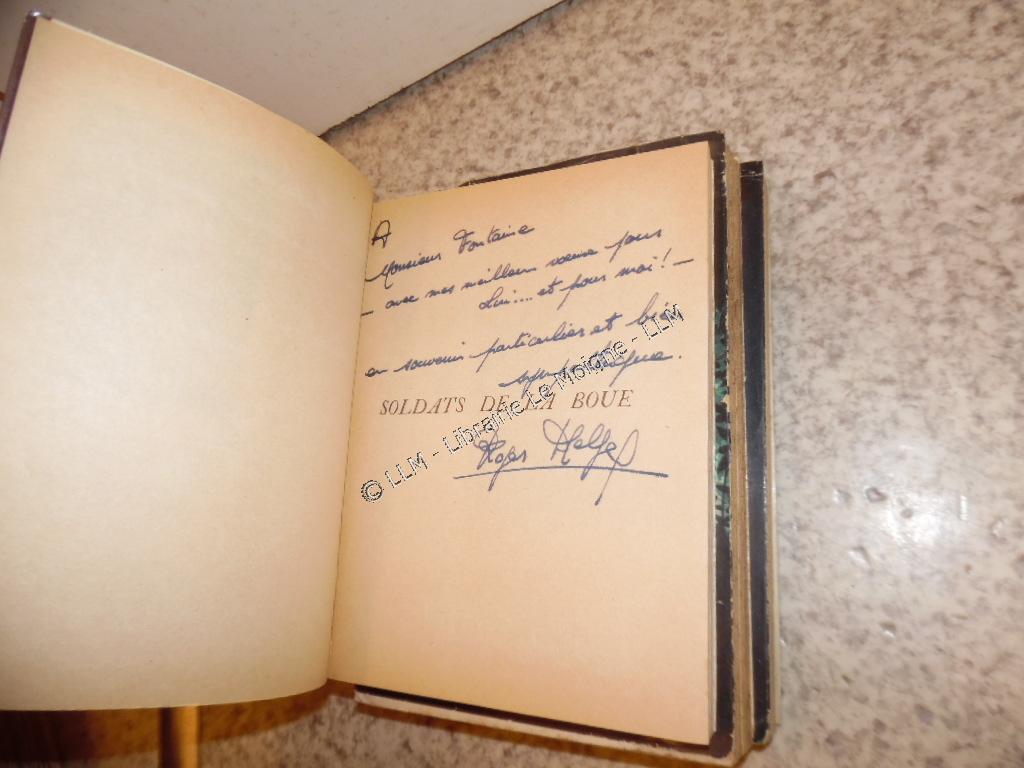 A
Monsieur Fontaine
_ avec mes meilleurs voeux pour
Lui.... et pour moi! _
en souvenir particulier et bien
sympathique.
SOLDATS DE LA BOUE
Roger
© LLM - Librairie Le Moigne - LLM